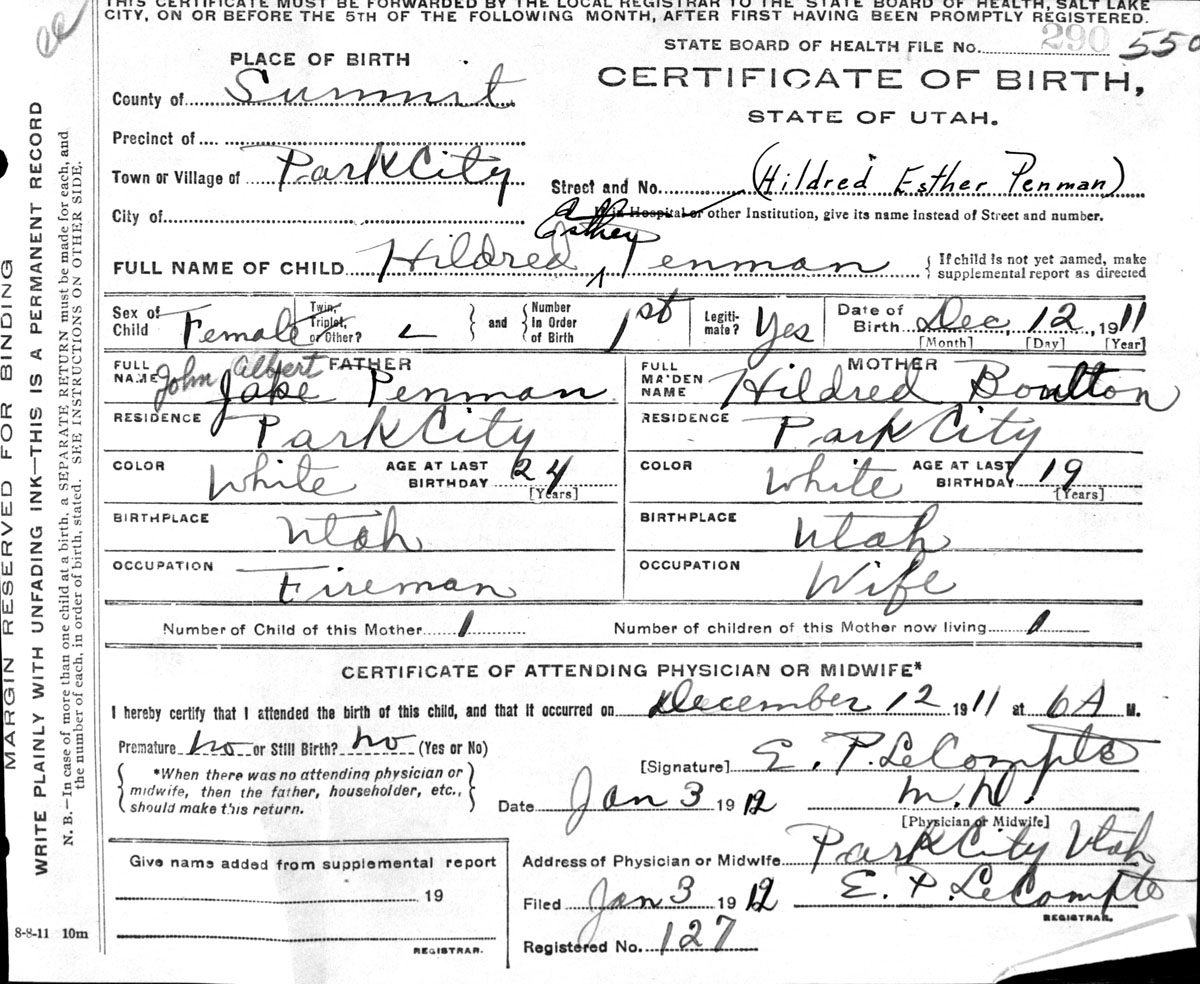 THIS CERTIFICATE MUST BE FORWARDED BY THE LOCAL REGISTRAR TO THE STATE BOARD OF HEALTH, SALT LAKE
CITY, ON OR BEFORE THE 5TH OF THE FOLLOWING MONTH, AFTER FIRST HAVING BEEN PROMPTLY REGISTERED.
STATE BOARD OF HEALTH FILE No. 290 550
PLACE OF BIRTH
CERTIFICATE OF BIRTH,
STATE OF UTAH.
County of Summit
Precinct of
Town or Village of Park City
Street and No. (Hildred Esther Penman)
City of
If in Hospital or other Institution, give its name instead of Street and number.
Esther
FULL NAME OF CHILD Hildred Penman
If child is not yet named, make
supplemental report as directed
Sex of Child Female
Twin, Triplet, or Other?
and
Number In Order of Birth 1st
Legitimate? Yes
Date of Birth Dec, 12, 1911
[Month] [Day] [Year]
FATHER
FULL NAME John Albert Jake Penman
MOTHER
FULL MAIDEN NAME Hildred Boulton
RESIDENCE Park City
RESIDENCE Park City
COLOR White AGE AT LAST BIRTHDAY 24 [Years]
COLOR White AGE AT LAST BIRTHDAY 19 [Years]
BIRTHPLACE Utah
BIRTHPLACE Utah
OCCUPATION Fireman
OCCUPATION Wife
Number of Child of this Mother 1 Number of children of this Mother now living 1
CERTIFICATE OF ATTENDING PHYSICIAN OR MIDWIFE*
I hereby certify that I attended the birth of this child, and that it occurred on December 12 1911 at 6A M.
Premature no or Still Birth? no (Yes or No)
*When there was no attending physician or
midwife, then the father, householder, etc.,
should make this return.
[Signature] E. P. LeCompte
M.D.
[Physician or Midwife]
Date Jan 3 1912
Give name added from supplemental report
19
REGISTRAR.
Address of Physician or Midwife Park City Utah
Filed Jan 3 1912 E. P. LeCompte
REGISTRAR.
Registered No. 127
8-8-11 10m
MARGIN RESERVED FOR BINDING
WRITE PLAINLY WITH UNFADING INK—THIS IS A PERMANENT RECORD
N. B.—In case of more than one child at a birth, a SEPARATE RETURN must be made for each, and
the number of each, in order of birth, stated. SEE INSTRUCTIONS ON OTHER SIDE.